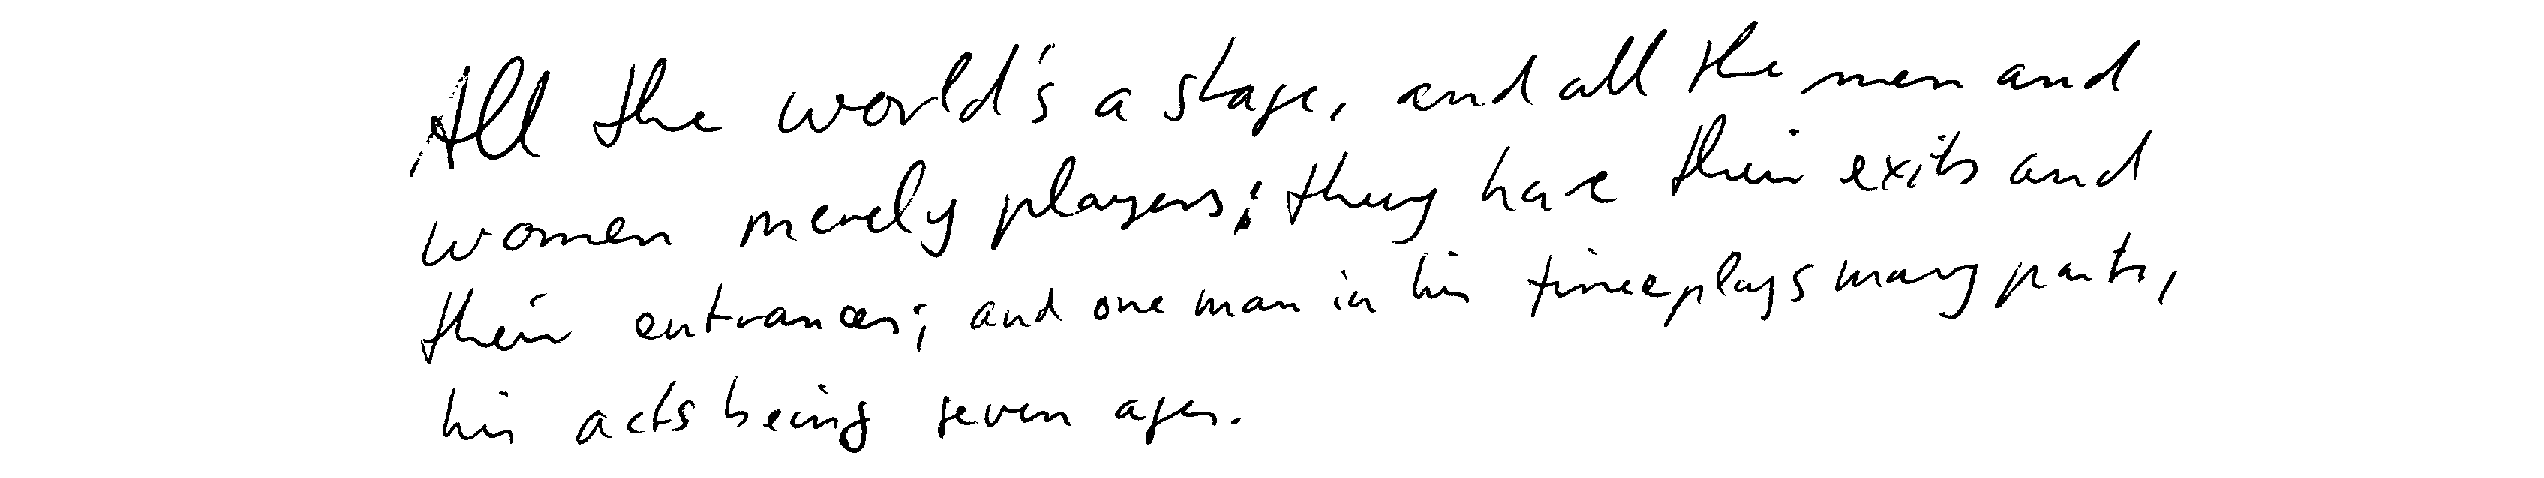 All the world's a stage, and all the men and
women merely players; they have their exits and
their entrances; and one man in his time plays many parts,
his acts being seven ages.